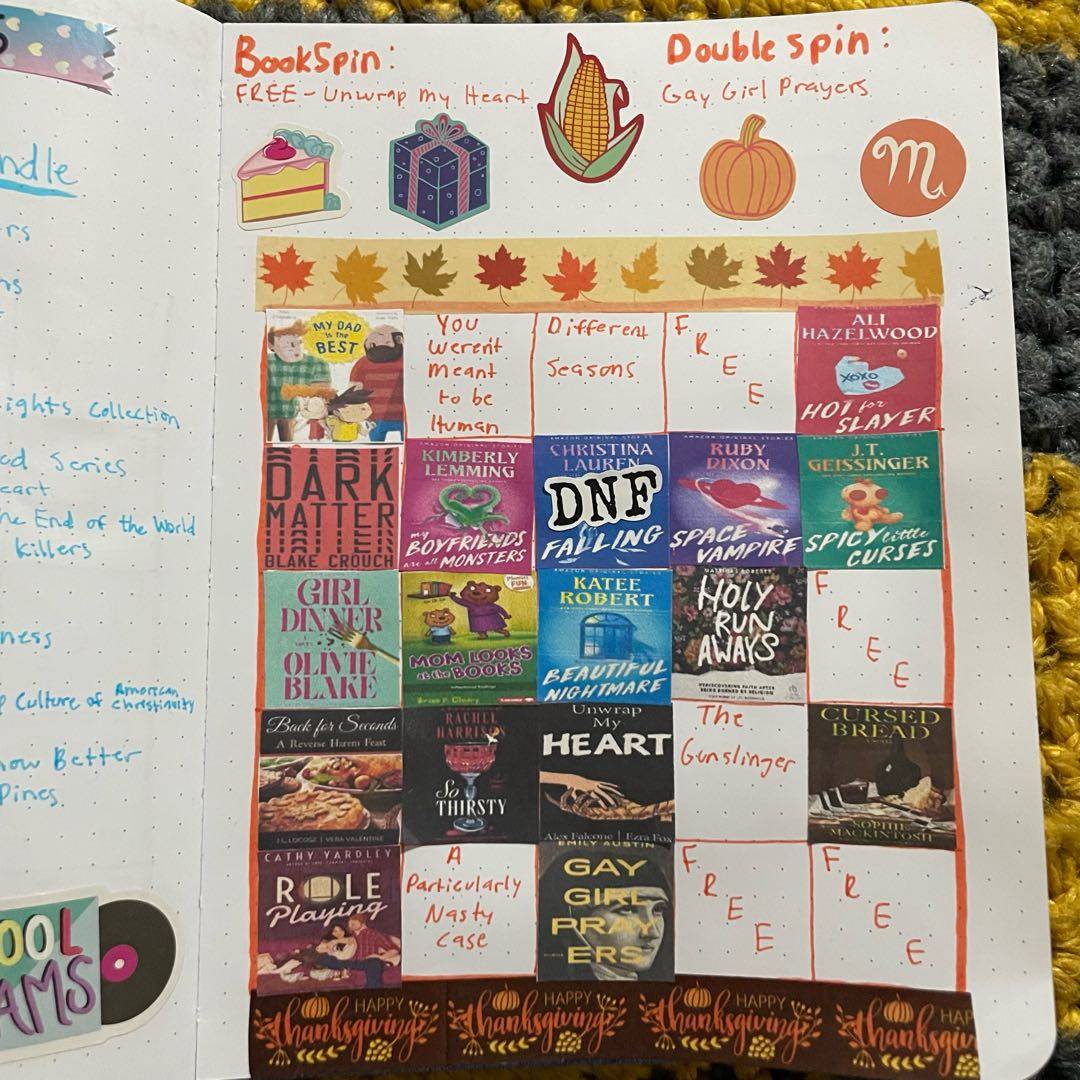 ndle
rs
ns
ights Collection
od Series
eart
he End of the World
Killers
ness
p Culture of American
Christianity
now Better
Pines
OOL
AMS
BookSpin:
FREE - Unwrap My Heart
Double spin:
Gay Girl Prayers
MY DAD
is the
BEST
You
weren't
meant
to be
Human
Different
Seasons
FREE
ALI
HAZELWOOD
XOXO
HOT for
SLAYER
DARK
MATTER
BLAKE CROUCH
AMAZON ORIGINAL STORIES
KIMBERLY
LEMMING
my
BOYFRIENDS
are all MONSTERS
AMAZON ORIGINAL STORIES
CHRISTINA
LAUREN
DNF
FALLING
AMAZON ORIGINAL STORIES
RUBY
DIXON
SPACE
VAMPIRE
AMAZON ORIGINAL STORIES
J.T.
GEISSINGER
SPICY little
CURSES
GIRL
DINNER
OLIVIE
BLAKE
MOM LOOKS
at the BOOKS
Brian P. Cleary
KATEE
ROBERT
BEAUTIFUL
NIGHTMARE
HOLY
RUN
AWAYS
REDISCOVERING FAITH AFTER
BEING BURNED BY RELIGION
FREE
Back for Seconds
A Reverse Harem Feast
VERA VALENTINE
RACHEL
HARRISON
So
THIRSTY
Unwrap
My
HEART
Alex Falcone | Ezra Fox
The
Gunslinger
CURSED
BREAD
SOPHIE
MACKINTOSH
CATHY YARDLEY
ROLE
Playing
A
Particularly
Nasty
Case
EMILY AUSTIN
GAY
GIRL
PRAY
ERS
FREE
FREE
HAPPY
thanksgiving
HAPPY
thanksgiving
HAPPY
thanksgiving
HAP
thanksgivin